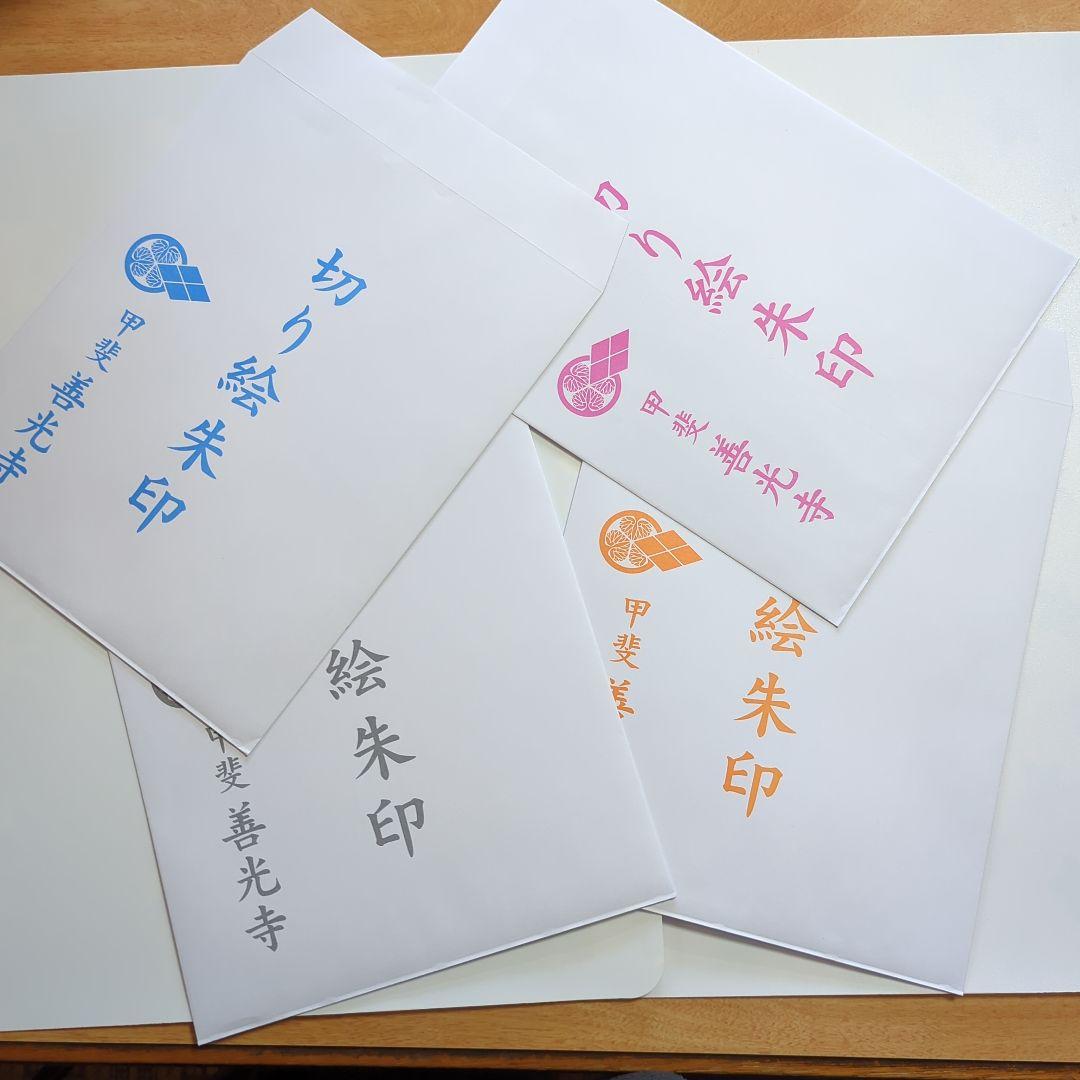 切り絵朱印
甲斐善光寺
切り絵朱印
甲斐善光寺
絵朱印
甲斐善光寺
絵朱印
甲斐善